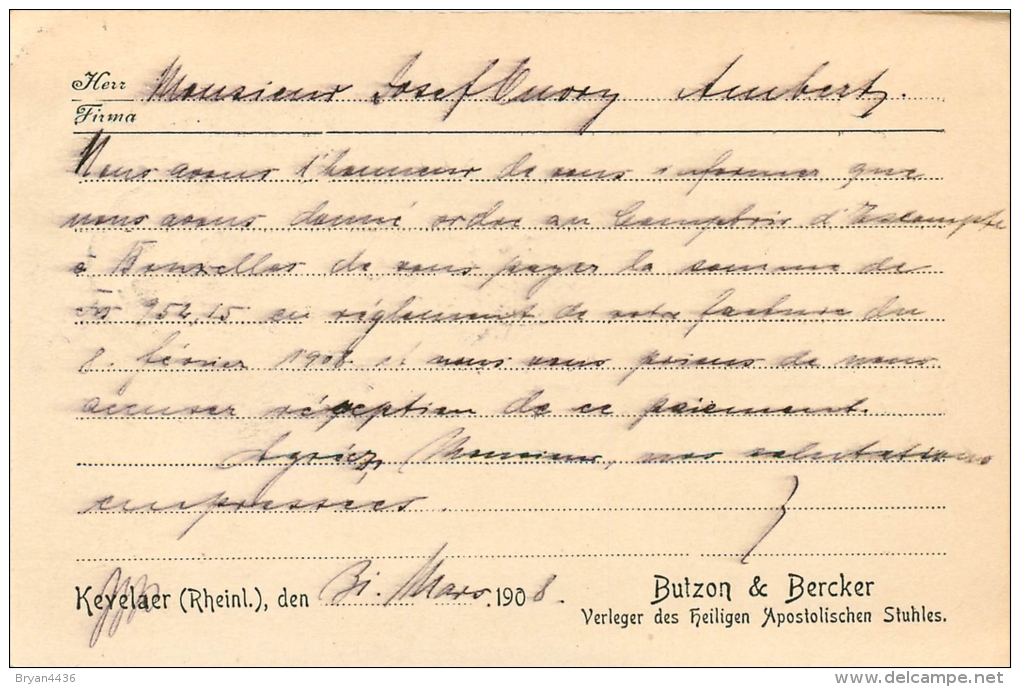 Herr
Firma
Monsieur Josef Ambert.
Nous avons l'honneur de vous informer que
nous avons donné ordre au Comptoir d'Escompte
à Bruxelles de vous payer la somme de
frs 952,15 en règlement de votre facture du
8. février 1908 et nous vous prions de nous
accuser réception de ce paiement.
Agréez, Monsieur, nos salutations
empressées.
Kevelaer (Rheinl.), den 31. Mars 1908.
Butzon & Bercker
Verleger des Heiligen Apostolischen Stuhles.
Bryan4436
www.delcampe.net